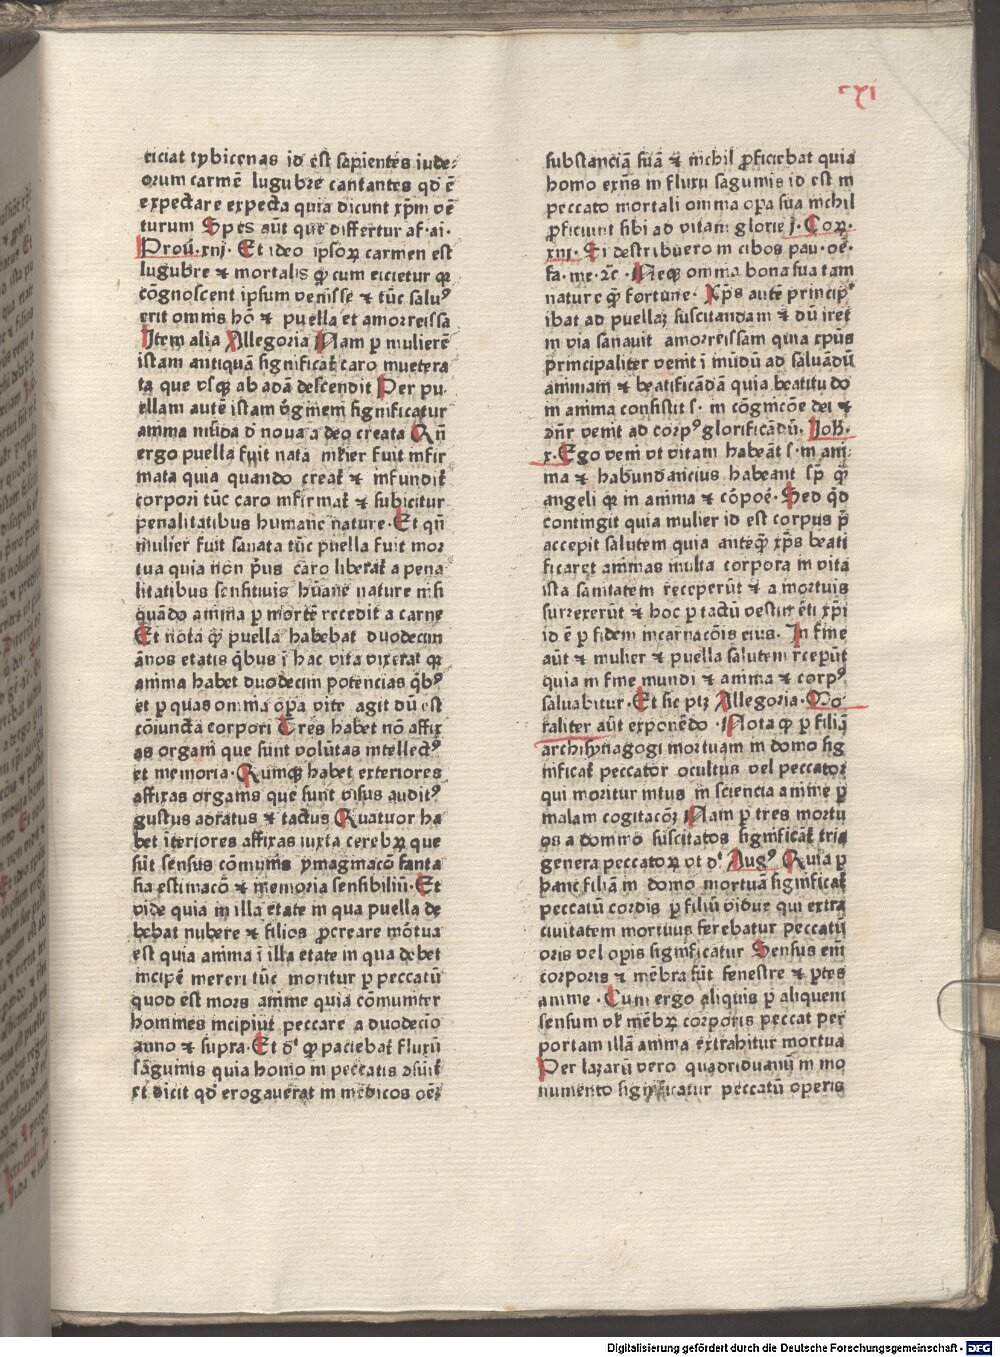 xi
eiciat tybicenas id est sapientes iude⸗
orum carmē lugubre cantantes qd ē
expectare expecta quia dicunt xp̄m vē
turum Spes aūt que differtur af·ai·
Prou·xiij· Et ideo ipsoꝝ carmen est
lugubre ⁊ mortalis ꝙ cum eicietur qꝛ
cōgnoscent ipsum venisse ⁊ tūc saluꝰ
erit omnis hō ⁊ puella et amorreissa
Item alia Allegoria Nam ꝑ mulierē
istam antiquā significat᷑ caro inuetera
ta que vsqꝫ ab adā descendit Per pu
ellam autē istam v̓ginem significatur
anima nisida d̄ noua a deo creata Qn̄
ergo puella fuit nata ml̓ier fuit infir
mata quia quando creat᷑ ⁊ infundit᷑
corpori tūc caro infirmat᷑ ⁊ subicitur
penalitatibus humane nature· Et qn̄
mulier fuit sanata tūc puella fuit mor
tua quia non p̄us caro liberat᷑ a pena
litatibus sensitiuis hūane nature nisi
quādo anima ꝑ mortē recedit a carne
Et nota ꝙ puella habebat duodecim
ānos etatis qͥbus ī hac vita vixerat qꝛ
anima habet duodecim potencias qͥbꝰ
et ꝑ quas omnia oꝑa vite agit dū est
cōiuncta corpori Tres habet nō affix
as organi que sunt volūtas intellectꝰ
et memoria· Quinqꝫ habet exteriores
affixas organis que sunt visus auditꝰ
gustus adratus ⁊ tactus Quatuor ha
bet īteriores affixas iuxta cerebꝝ que
sūt sensus cōmunis ymaginacō fanta
sia estimacō ⁊ memoria sensibiliū· Et
vide quia in illa etate in qua puella de
bebat nubere ⁊ filios ꝓcreare mōtua
est quia anima ī illa etate in qua debet
incipē mereri tūc moritur ꝑ peccatū
quod est mors anime quia cōmuniter
homines incipiūt peccare a duodecio
anno ⁊ supra· Et dꝛ ꝙ paciebat᷑ fluxū
sāguinis quia homo in peccatis ɔsūit᷑
et dicit qd erogauerat in medicos oēꝫ
substanciā suā ⁊ nichil ꝓficiebat quia
homo exn̄s in fluxu sāguinis id est in
peccato mortali omnia oꝑa sua nichil
ꝓficiunt sibi ad vitam glorie i· Coꝝ·
xiij· Si destribuero in cibos pau·oēs
fa·me·ꝛc· Neqꝫ omnia bona sua tam
nature ꝙ̄ fortune· Xp̄s autē principlꝰ
ibat ad puellaꝫ suscitandam ⁊ dū iret
in via sanauit amorreissam quia xp̄us
principaliter venit ī mūdū ad saluādū
animam ⁊ beatificādā quia beatitudo
in anima consistit s· in cōgnicōe dei ⁊
ɔn̄r venit ad corpꝰ glorificādū· Joh·
x· Ego veni vt vitam habeāt s· in ani
ma ⁊ habundancius habeant sp̄ ꝙ̄
angeli qꝛ in anima ⁊ cōpoē· Sed qd̄
contingit quia mulier id est corpus p̄
accepit salutem quia anteqꝫ xp̄s beati
ficaret animas multa corpora in vita
ista sanitatem receperūt ⁊ a mortuis
surrexerūt ⁊ hoc ꝑ tactū vestimēti xp̄i
id ē ꝑ fidem incarnacōis eius· In fine
aūt ⁊ mulier ⁊ puella salutem rceperūt
quia in fine mundi ⁊ anima ⁊ corpꝰ
saluabitur· Et sic ptꝫ Allegoria· Mo
raliter aūt exponēdo· Nota ꝙ ꝑ filiā
archisynagogi mortuam in domo sig
nificat᷑ peccator ocultus vel peccator
qui moritur intus in sciencia anime ꝑ
malam cogitacōꝫ Nam ꝑ tres mortu
os a domino suscitatos significat᷑ tria
genera peccatoꝝ vt dꝛ Augꝰ Quia ꝑ
hanc filiā in domo mortuā significat᷑
peccatū cordis ꝑ filiū vidue qui extra
ciuitatem mortuus ferebatur peccatū
oris vel oꝑis significatur Sensus em̄
corporis ⁊ mēbra sūt fenestre ⁊ ꝑtes
anime· Cum ergo aliquis ꝑ aliquem
sensum vl̓ mēbꝝ corporis peccat per
portam illā anima extrahitur mortua
Per lazarū vero quadriduanū in mo
numento significatur peccatū operis
Digitalisierung gefördert durch die Deutsche Forschungsgemeinschaft - DFG